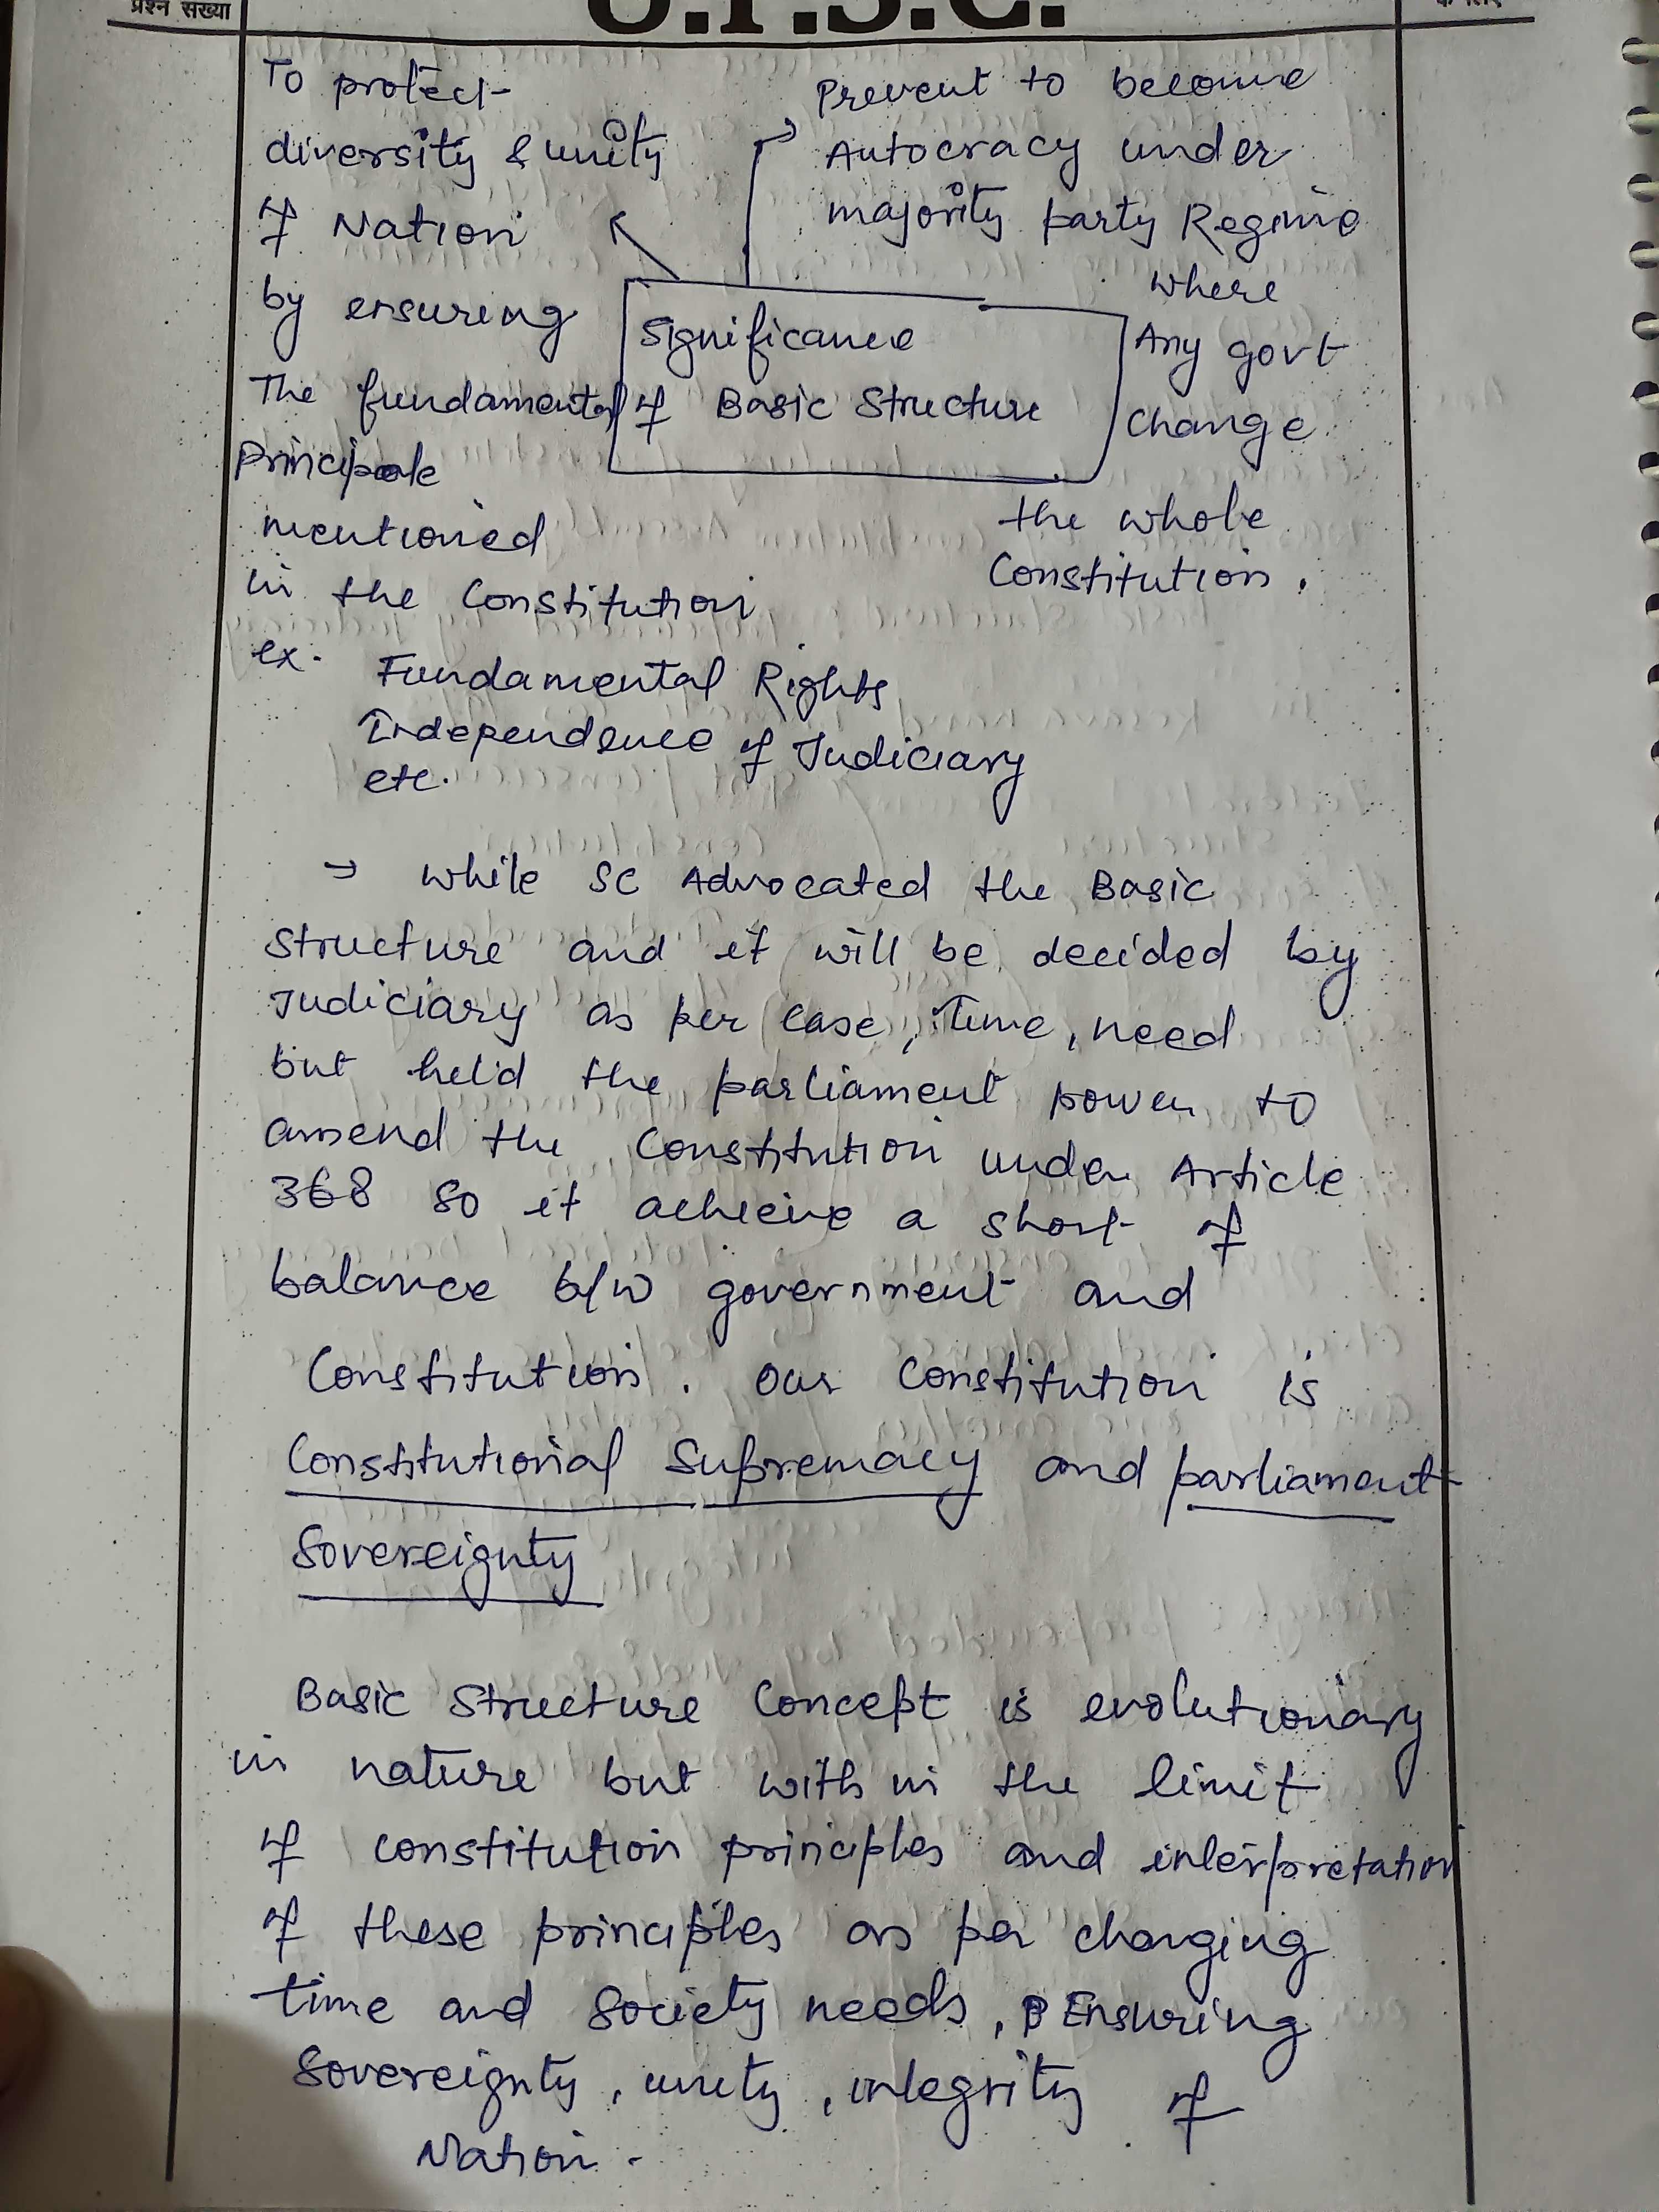 प्रश्न संख्या
U.P.S.C.
के लिए
To protect
diversity & unity
of Nation
by ensuring
The fundamental
Principale
mentioned
in the Constitution
ex. Fundamental Rights
Independence of Judiciary
etc.
Prevent to become
Autocracy under
majority party Regime
where
Any govt
Change
the whole
Constitution.
Significance
of Basic Structure
→ while SC Advocated the Basic
Structure and it will be decided by
Judiciary as per case, Time, need
but held the parliament power to
amend the Constitution under Article
368 so it achieve a short of
balance b/w government and
Constitution. Our Constitution is
Constitutional Supremacy and parliament
Sovereignty
Basic Structure Concept is evolutionary
in nature but with in the limit
of constitution principles and interpretation
of these principles as per changing
time and Society needs, Ensuring
Sovereignty, unity, integrity of
Nation.